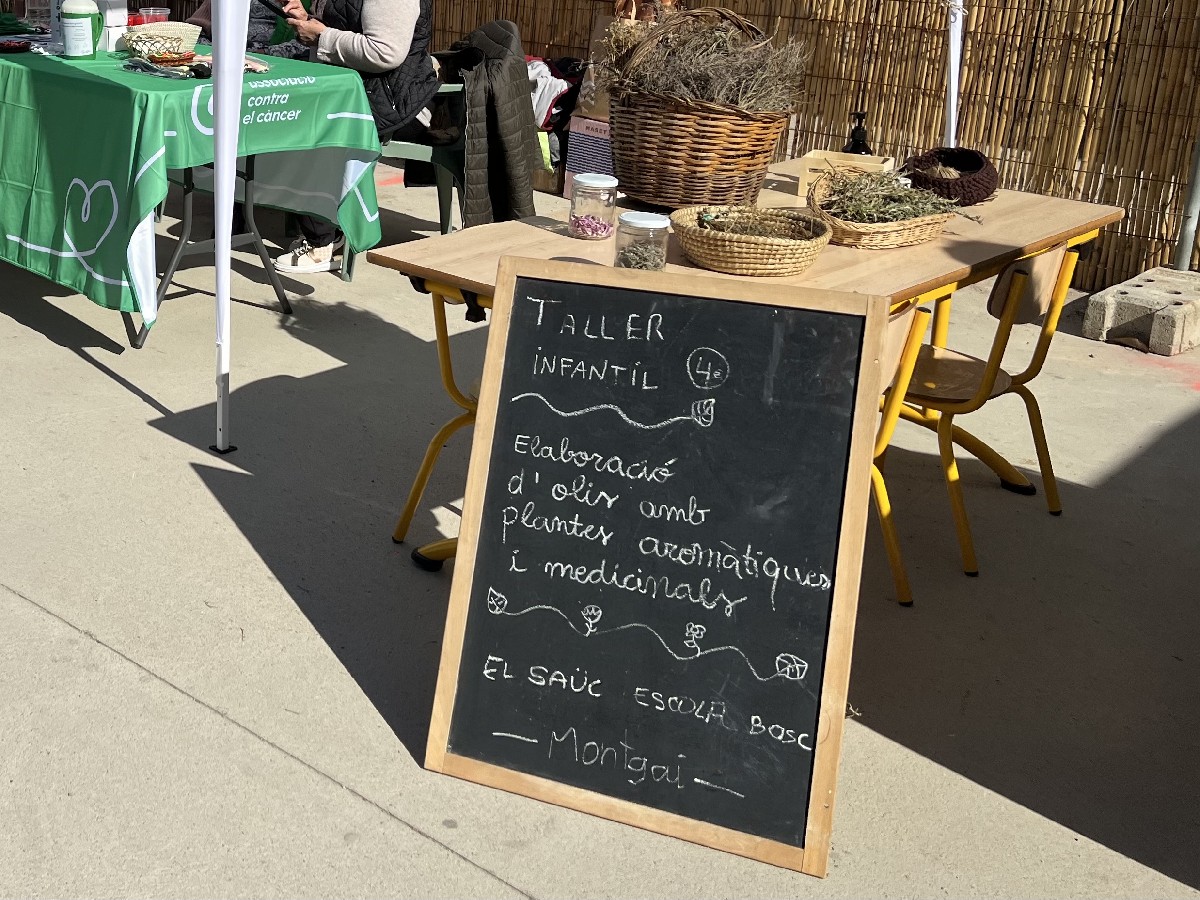 associació
contra
el càncer
TALLER
INFANTÍL 4€
Elaboració
d'olis amb
plantes aromàtiques
i medicinals
EL SAÜC ESCOLA BOSC
— Montgai —